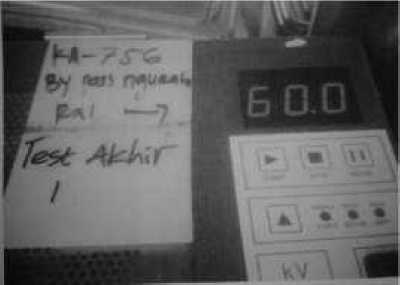 KA-756
By pass ngurah
Rai →
Test Akhir
1
60.0
kV